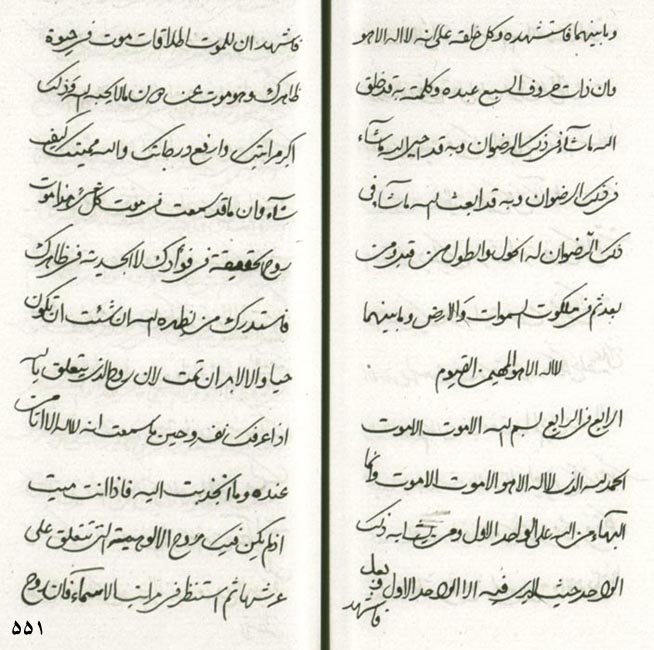 وما بينهما فاستشهده وكل خلقه على انه لا اله الا هو
وان ذات حروف السبع عبده وكلمته به قد خلق
الله ما شاء في ذلك الرضوان وبه قد احيى الله ما شاء
في ذلك الرضوان وبه قد ابعث الله ما شاء في
ذلك الرضوان له الحول والطول من قبل ومن
بعد ثم في ملكوت السموات والارض وما بينهما
لا اله الا هو المهيمن القيوم
الرابع في الرابع بسم الله الاموت الاموت
الحمد لله الذي لا اله الا هو الاموت الاموت وانما
البهاء من الله على الواحد الاول ومن يشابه ذلك
الواحد حيث لا يرى فيه الا الواحد الاول وبعد
فاشهد
فاشهد ان للموت اطلاقات موت في حيوة
ظاهرك وهو موت عن دون ما لا يحبه الله وذلك
اكبر مراتبك وارفع درجاتك والله مميتك كيف
شاء وان ما قد سمعت في موت كل
روح الحقيقة في فؤادك لا الجسدية في ظاهرك
فاستدرك من يظهره الله ان شئت ان تكون
حيا والا لابد ان تمت لان روح الذي يتعلق بالله
اذا عرفك نفسه وحين ما سمعت انه لا اله الا انا مت
عنده وما انجذبت اليه فاذا انت ميت
اذ لم يكن فيك من روح الالوهية التي تتعلق على
عرشها ثم استنظر في مراتب الاسماء فان روح
٥٥١